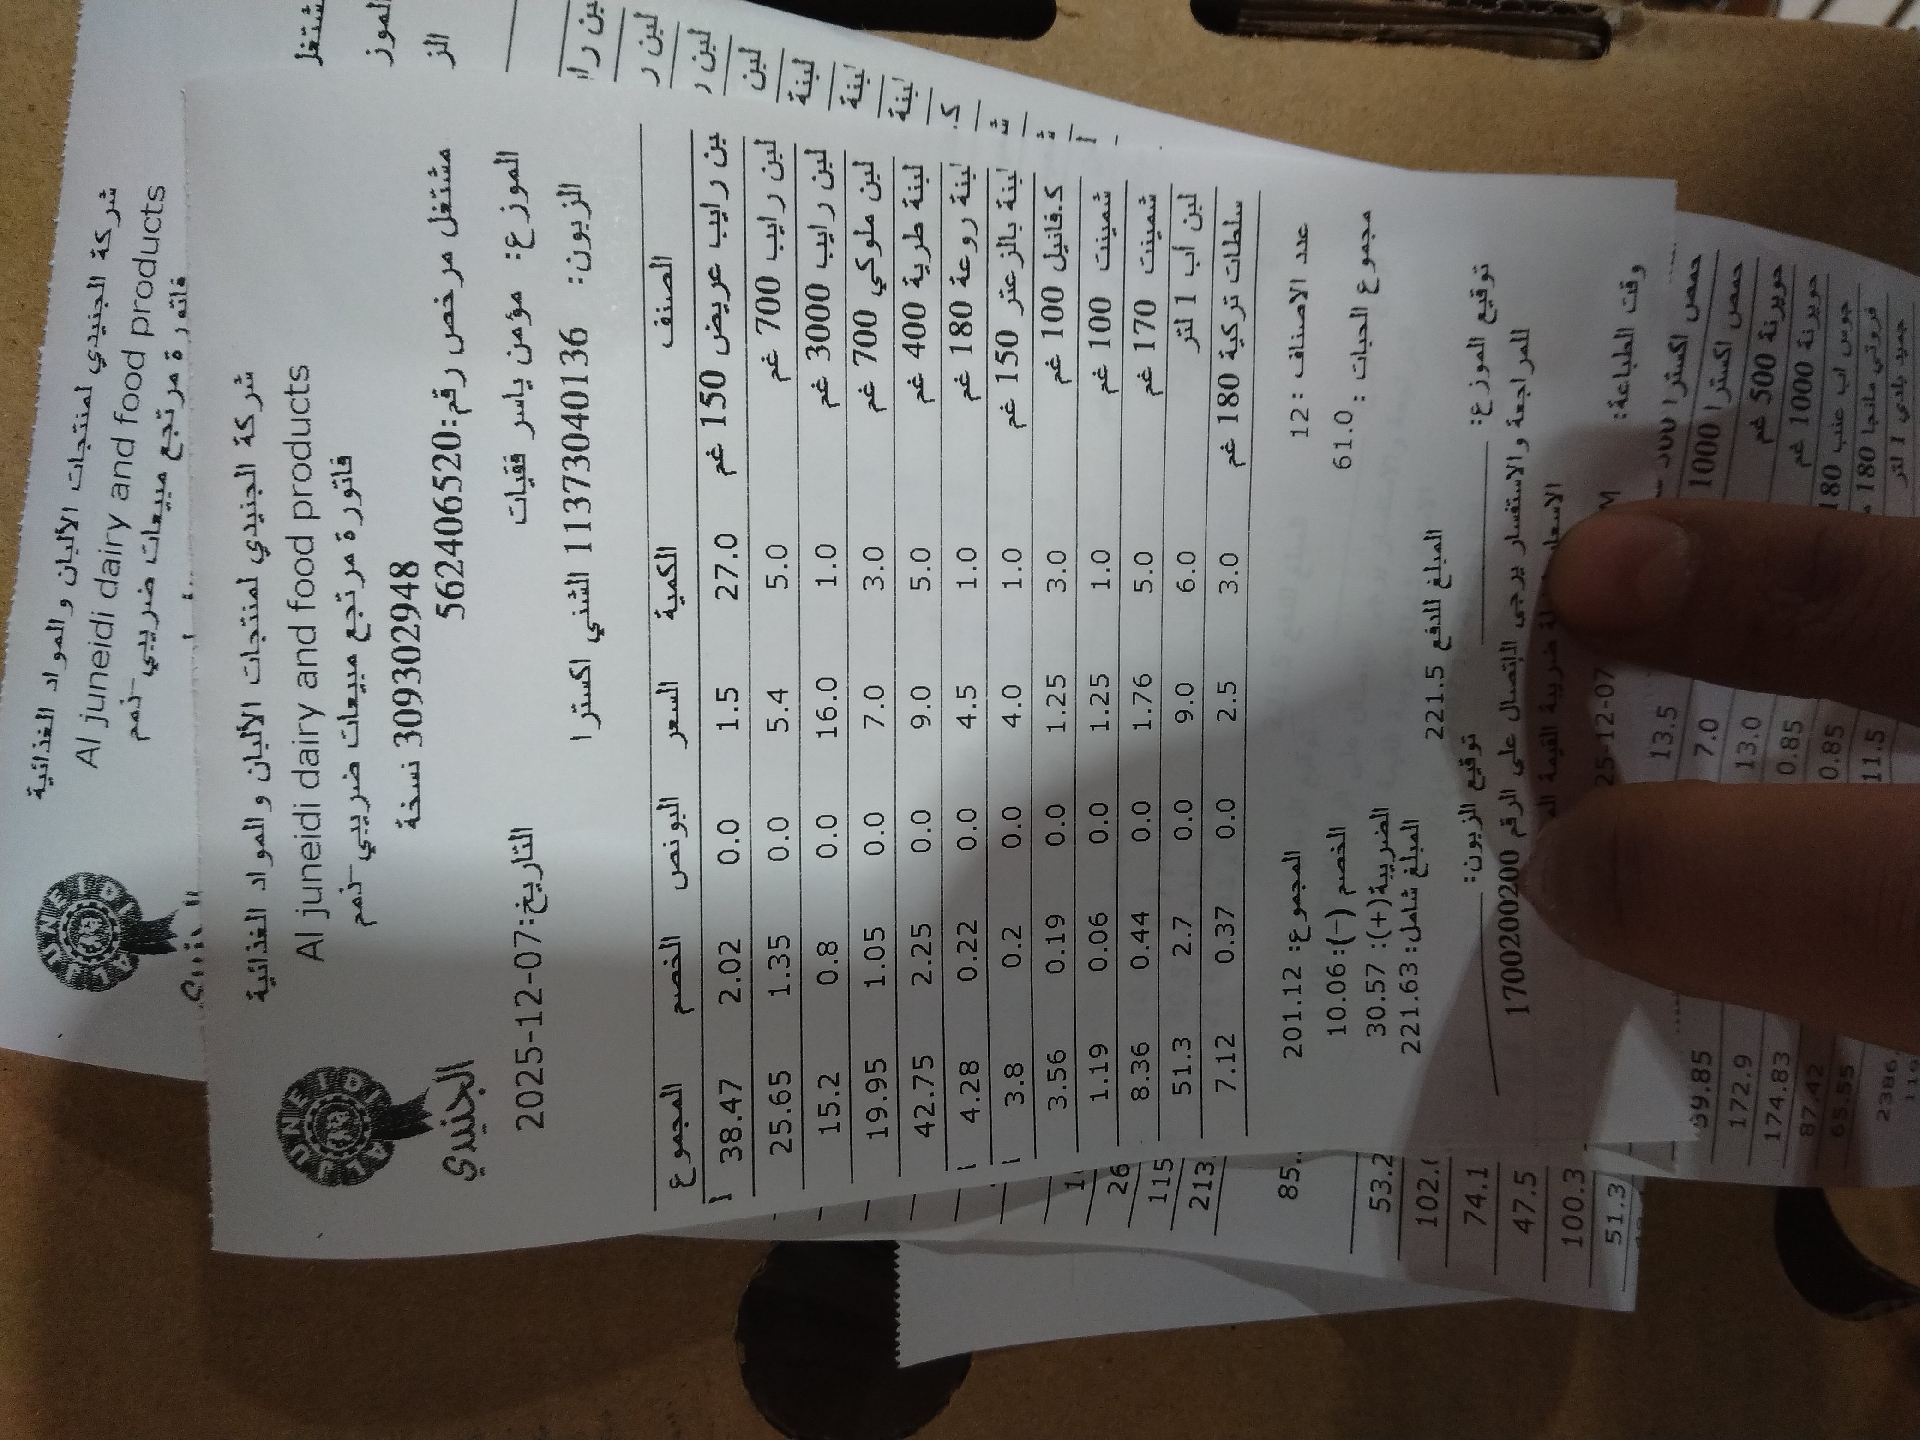 شركة الجنيدي لمنتجات الألبان والمواد الغذائية
Al juneidi dairy and food products
فاتورة مرتجع مبيعات ضريبي-ذمم
AL JUNEIDI
شركة الجنيدي لمنتجات الألبان والمواد الغذائية
Al juneidi dairy and food products
فاتورة مرتجع مبيعات ضريبي-ذمم
309302948 نسخة
مشتغل مرخص رقم:562406520
AL JUNEIDI
الجنيدي
الموزع: مؤمن ياسر فقيات
التاريخ:2025-12-07
الزبون: 11373040136 الشني اكسترا
الصنف الكمية السعر البونص الخصم المجموع
بن رايب عريض 150 غم 27.0 1.5 0.0 2.02 38.47
لبن رايب 700 غم 5.0 5.4 0.0 1.35 25.65
لبن رايب 3000 غم 1.0 16.0 0.0 0.8 15.2
لبن ملوكي 700 غم 3.0 7.0 0.0 1.05 19.95
لبنة طرية 400 غم 5.0 9.0 0.0 2.25 42.75
لبنة روعة 180 غم 1.0 4.5 0.0 0.22 4.28
لبنة بالزعتر 150 غم 1.0 4.0 0.0 0.2 3.8
ك.فانيل 100 غم 3.0 1.25 0.0 0.19 3.56
شمينت 100 غم 1.0 1.25 0.0 0.06 1.19
شمينت 170 غم 5.0 1.76 0.0 0.44 8.36
لبن أب 1 لتر 6.0 9.0 0.0 2.7 51.3
سلطات تركية 180 غم 3.0 2.5 0.0 0.37 7.12
عدد الاصناف : 12
المجموع: 201.12
مجموع الحبات : 61.0
الخصم (-):10.06
الضريبة(+): 30.57
المبلغ شامل: 221.63
المبلغ للدفع 221.5
توقيع الموزع:
توقيع الزبون:
للمراجعة والاستفسار يرجى الاتصال على الرقم 1700200200
وقت الطباعة:
25-12-07
13.5 69.85
حمص اكسترا 1000 7.0 172.9
حويرنة 500 غم 13.0 174.83
حويرنة 1000 غم 0.85 87.42
جوس اب عنب 180 0.85 65.55
فروتي مانجا 180 11.5
جميد بلدي 1 لتر
26
115
213
53.2
74.1
47.5
100.3
51.3